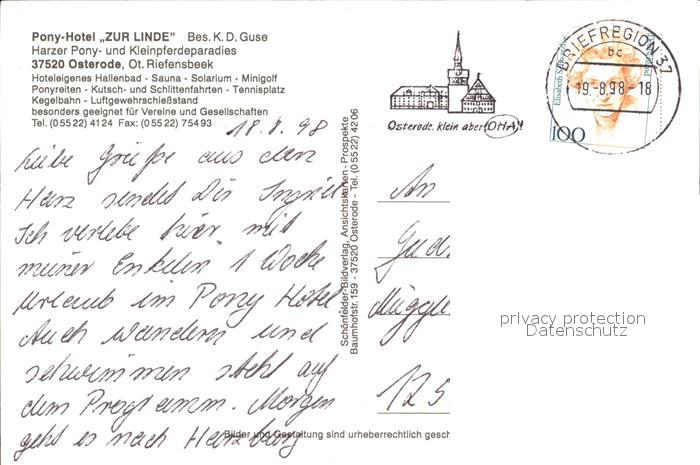 Pony-Hotel „ZUR LINDE" Bes. K. D. Guse
Harzer Pony- und Kleinpferdeparadies
37520 Osterode, Ot. Riefensbeek
Hoteleigenes Hallenbad - Sauna - Solarium - Minigolf
Ponyreiten - Kutsch- und Schlittenfahrten - Tennisplatz
Kegelbahn - Luftgewehrschießstand
besonders geeignet für Vereine und Gesellschaften
Tel. (0 55 22) 41 24 Fax: (0 55 22) 7 54 93
18.8.98
Liebe Grüße aus dem
Harz sendet Dir Ingrid
Ich verlebe hier mit
meiner Enkelin 1 Woche
Urlaub im Pony Hotel
Auch wandern und
schwimmen steht auf
dem Programm. Morgen
gehts es nach Harzburg
Bilder und Gestaltung sind urheberrechtlich gesch
Schönfelder-Bildverlag, Ansichtskarten - Prospekte
Baumhofstr. 159 - 37520 Osterode - Tel. (0 55 22) 42 06
Osterode. klein aber OHA!
BRIEFREGION 37
bc
19.-8.98-18
100
An
Gud
Müggel
125
privacy protection
Datenschutz